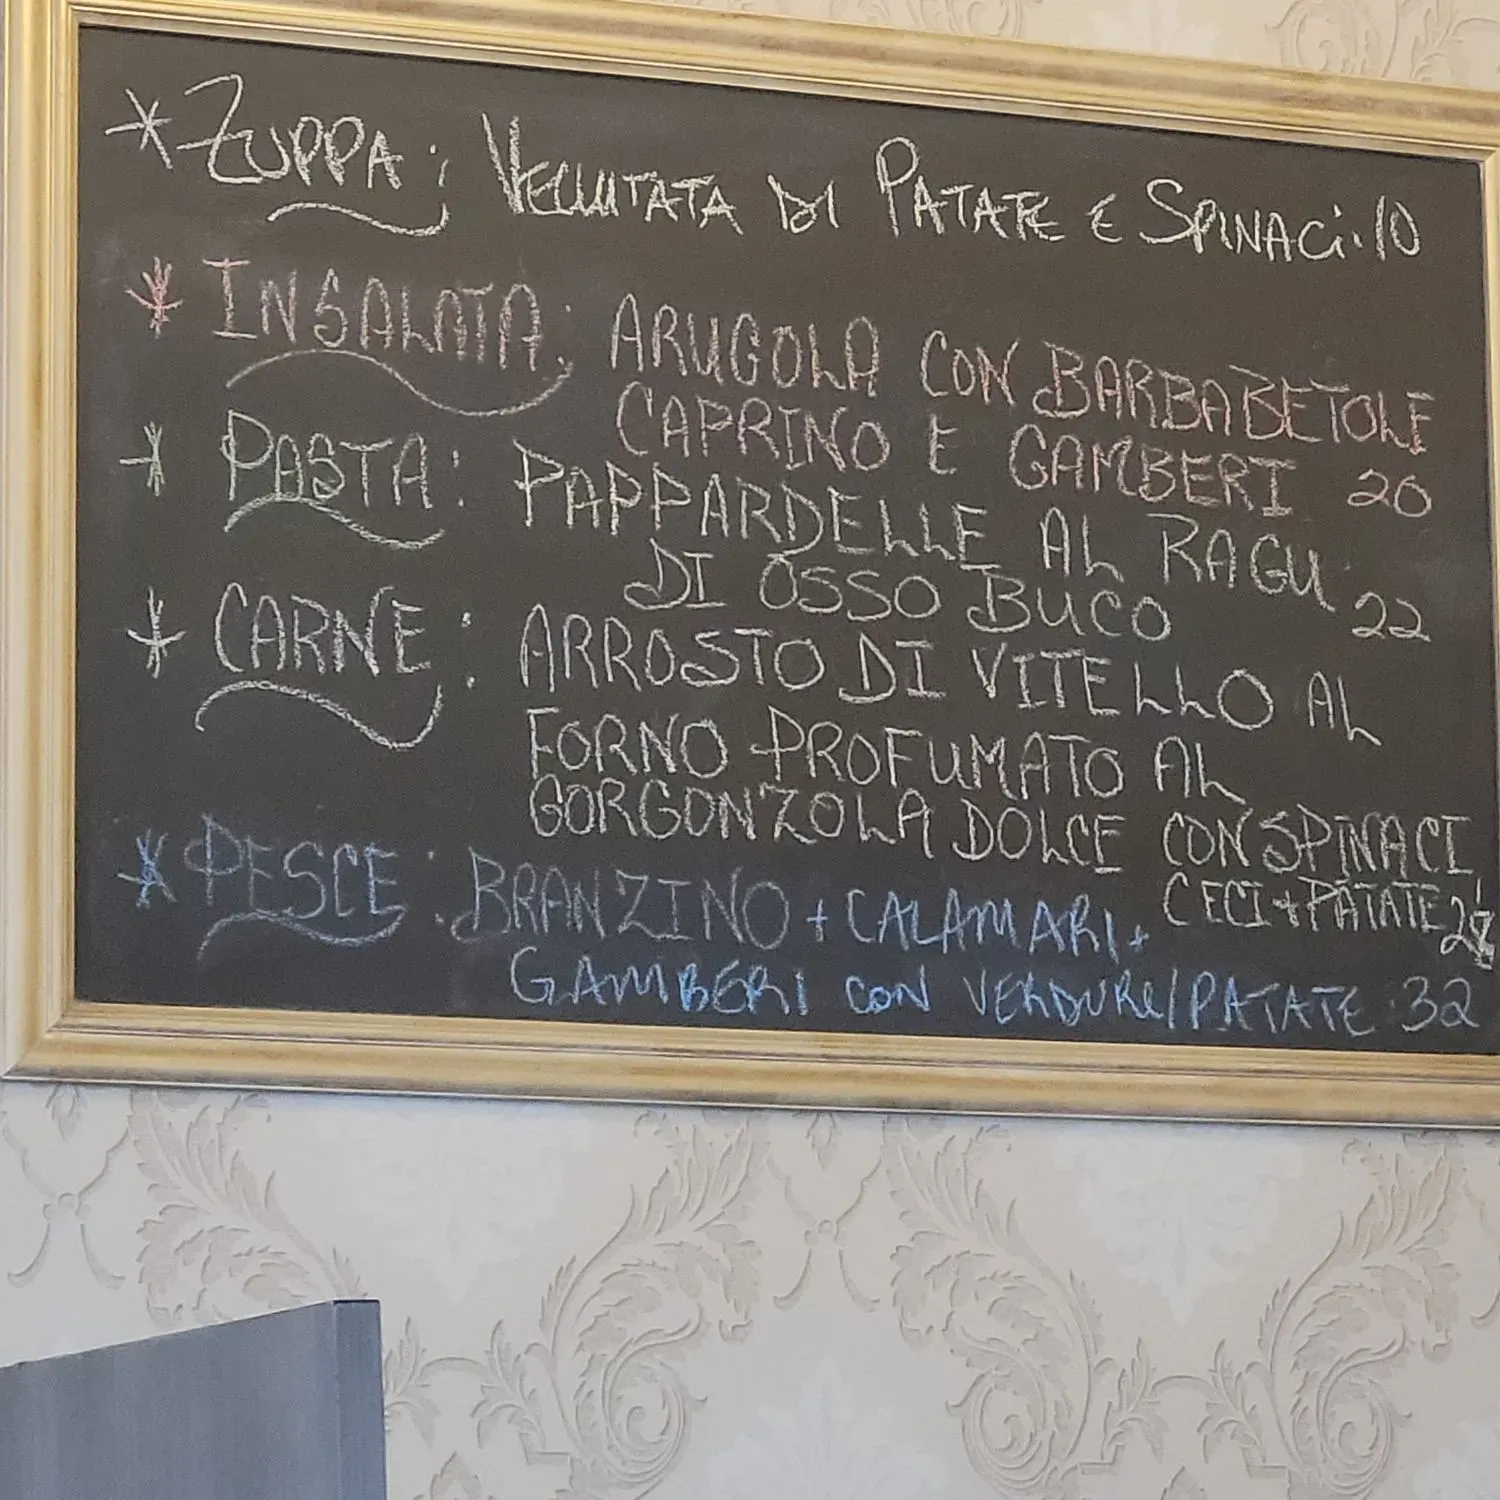 * ZUPPA: VELLUTATA DI PATATE E SPINACI. 10
* INSALATA: ARUGOLA CON BARBABETOLE
CAPRINO E GAMBERI 20
* PASTA: PAPPARDELLE AL RAGU
DI OSSO BUCO 22
* CARNE: ARROSTO DI VITELLO AL
FORNO PROFUMATO AL
GORGONZOLA DOLCE CON SPINACI
CECI + PATATE
* PESCE: BRANZINO + CALAMARI +
GAMBERI CON VERDURE/PATATE 32